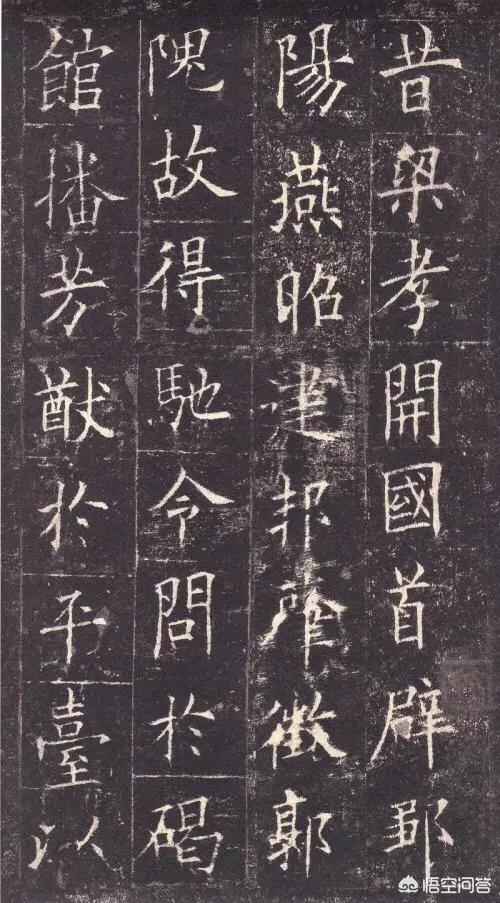 昔梁孝開國首辟鄒
陽燕昭建邦肇徵郭
隗故得馳令問於碣
館播芳猷於平臺以
悟空问答